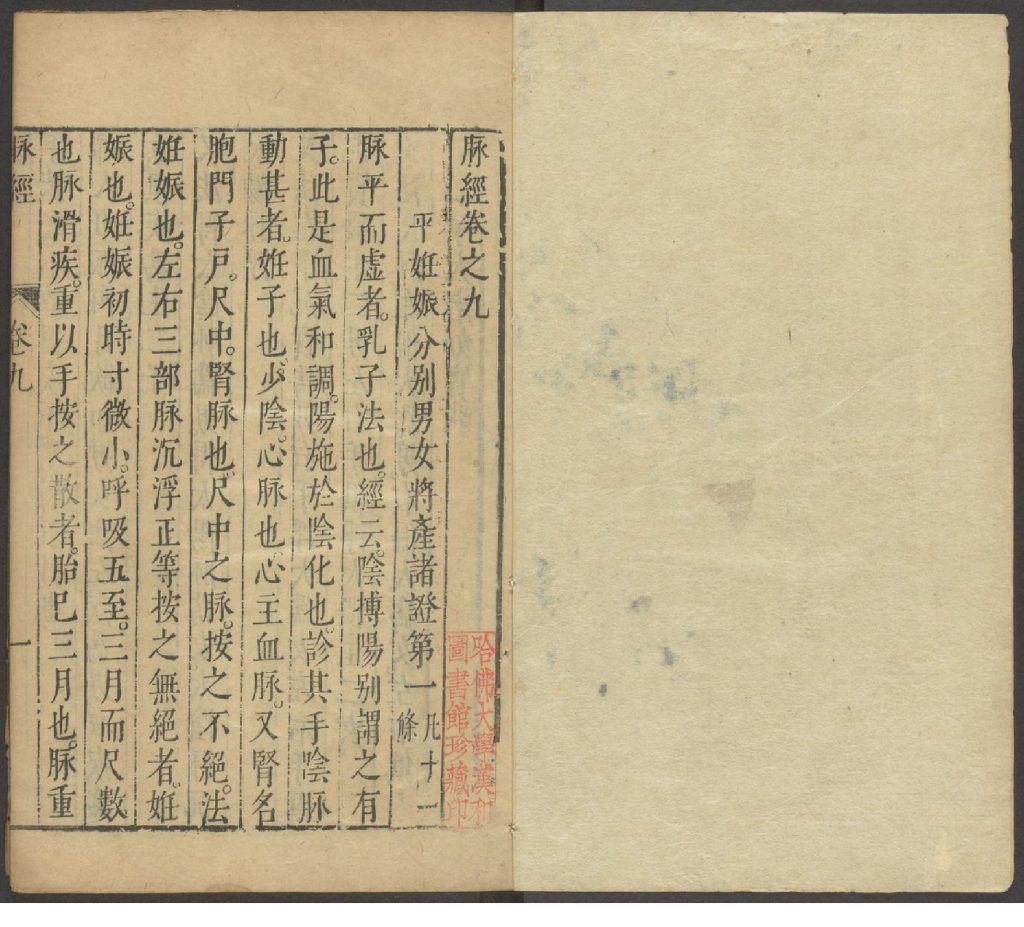 脉經卷之九
平姙娠分别男女將產諸證第一凡十一條
脉平而虚者。乳子法也。經云。陰搏陽别。謂之有
子。此是血氣和調。陽施於陰化也。診其手陰脉
動甚者。姙子也。少陰。心脉也。心主血脉。又腎名
胞門子戸。尺中。腎脉也。尺中之脉。按之不絕。法
姙娠也。左右三部脉沉浮正等按之無絕者。姙
娠也。姙娠初時寸微小。呼吸五至。三月而尺數
也脉滑疾。重以手按之散者。胎巳三月也。脉重
脉經
卷九
一
哈佛大學漢和
圖書館珍藏印